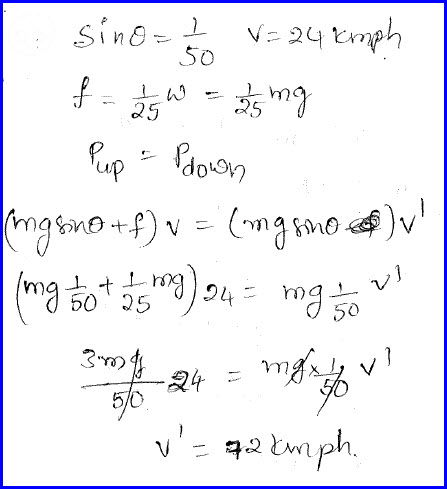 sinθ = 1/50 V = 24 kmph
f = 1/25 w = 1/25 mg
Pup = Pdown
(mg sinθ + f) v = (mg sinθ ) v'
(mg 1/50 + 1/25 mg) 24 = mg 1/50 v'
3mg/50 24 = mg × 1/50 v'
v' = 72 kmph.